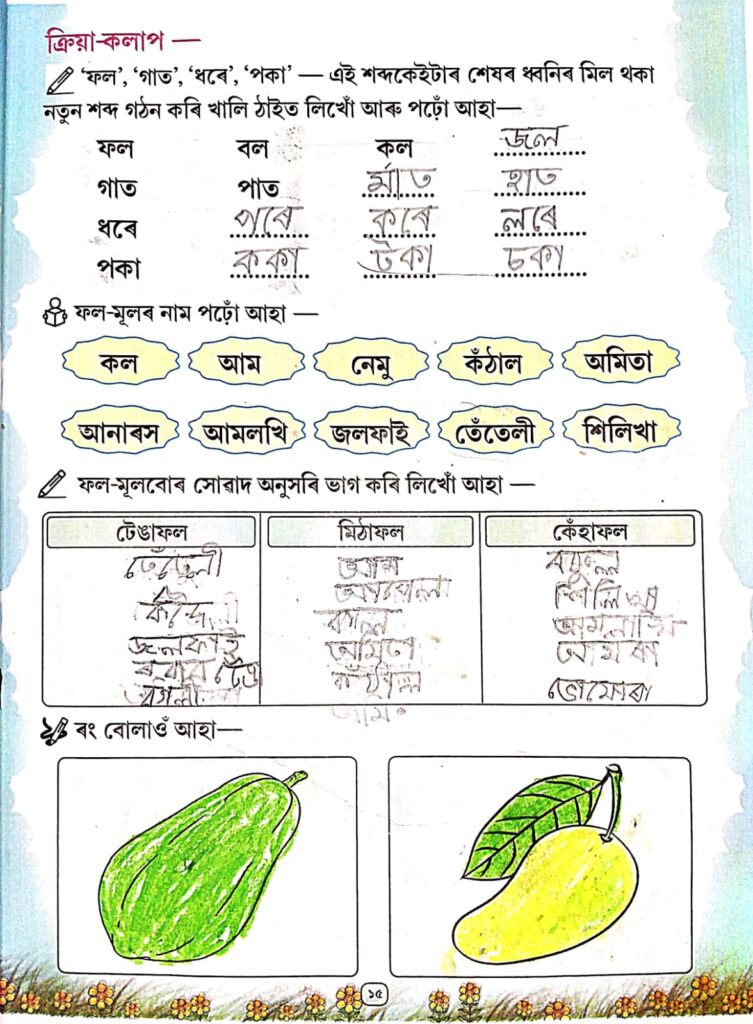 ক্ৰিয়া-কলাপ —
'ফল', 'গাত', 'ধৰে', 'পকা' — এই শব্দকেইটাৰ শেষৰ ধ্বনিৰ মিল থকা
নতুন শব্দ গঠন কৰি খালি ঠাইত লিখোঁ আৰু পঢ়োঁ আহা—
ফল বল কল জল
গাত পাত মাত হাত
ধৰে পৰে কৰে লৰে
পকা ককা টকা চকা
ফল-মূলৰ নাম পঢ়োঁ আহা —
কল আম নেমু কঁঠাল অমিতা
আনাৰস আমলখি জলফাই তেঁতেলী শিলিখা
ফল-মূলবোৰ সোৱাদ অনুসৰি ভাগ কৰি লিখোঁ আহা —
টেঙাফল মিঠাফল কেঁহাফল
তেঁতেলী
শিলিখা
জলফাই অমিতা
কঁঠাল
ৰং বোলাওঁ আহা—
১৫